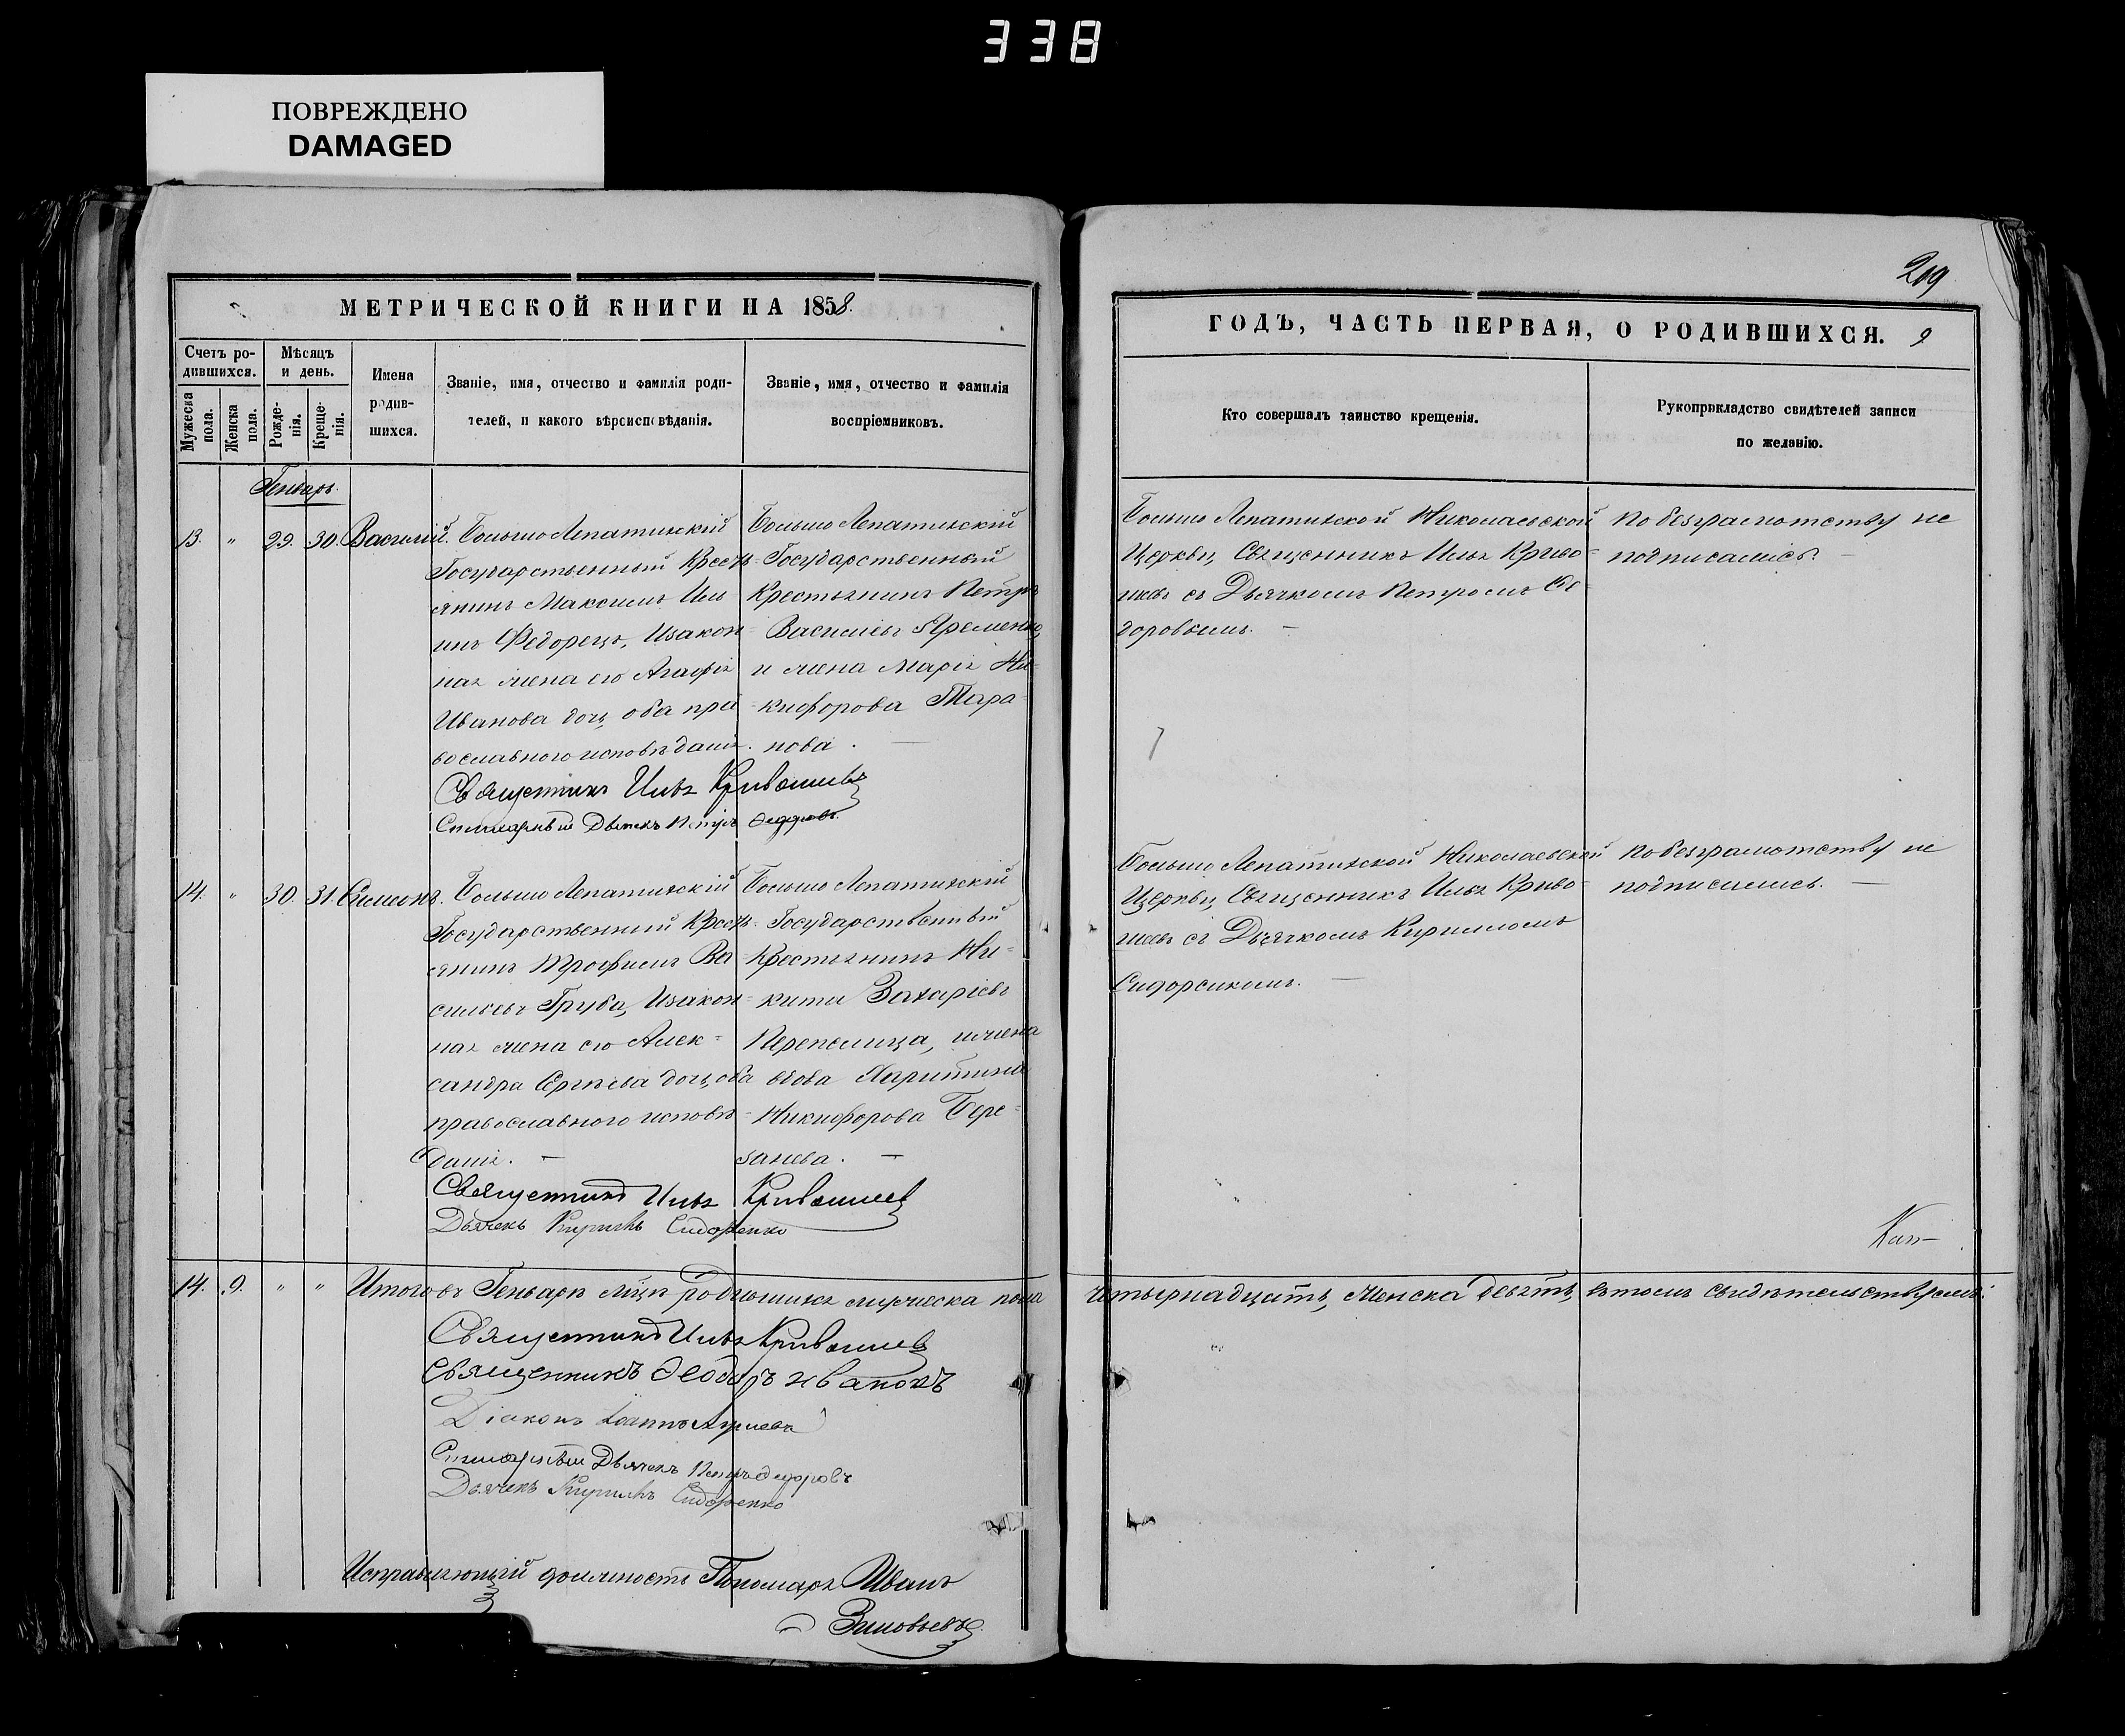 338
ПОВРЕЖДЕНО
DAMAGED
209
МЕТРИЧЕСКОЙ КНИГИ НА 1858.
Счетъ ро-
дившихся.
Мужеска пола.
Женска пола.
Мѣсяцъ
и день.
Рожде-
нія.
Креще-
нія.
Имена
родив-
шихся.
Званіе, имя, отчество и фамилія роди-
телей, и какого вѣроисповѣданія.
Званіе, имя, отчество и фамилія
воспріемниковъ.
Генварь.
13. " 29. 30. Василій.
Большо Лепатихскій
Государственный Кресть-
янинъ Максимъ Иль
инъ Федорецъ, Изакон-
ная жена его Агафія
Иванова дочь, оба пра-
вославнаго исповѣданія.
Большо Лепатихскій
Государственный
Крестьянинъ Петръ
Васильевъ Яременко,
и жена Марія Ни-
кифорова Тара-
нова.
Священникъ Илья Кривошеевъ
Дьячекъ Петръ Федоровъ
14. " 30. 31. Симеонъ.
Большо Лепатихскій
Государственный Кресть-
янинъ Трофимъ Ва-
сильевъ Груба, Изакон-
ная жена его Алек-
сандра Сергѣева дочь, оба
православнаго исповѣ-
данія.
Большо Лепатихскій
Государственный
Крестьянинъ Ни-
кита Захаріевъ
Перепелица, и жена
вдова Харитина
Никифорова Бере-
занева.
Священникъ Илья Кривошеев
Дьячекъ Кириллъ Сидоренко
14. 9. " " Итого въ Генварѣ мѣцѣ родившихся мужеска пола
Священникъ Илья Кривошеев
Священникъ Ѳеодоръ Ивановъ
Діаконъ Іоаннъ
Дьячекъ Петръ Федоровъ
Дьячекъ Кириллъ Сидоренко
Исправляющій должность Пономаря Иванъ
Зиновьевъ
ГОДЪ, ЧАСТЬ ПЕРВАЯ, О РОДИВШИХСЯ. 9
Кто совершалъ таинство крещенія.
Рукоприкладство свидѣтелей записи
по желанію.
Большо Лепатихской Николаевской
Церкви, Священникъ Илья Криво-
шеевъ съ Дьячкомъ Петромъ Фе-
доровымъ.
По безграмотству не
подписались.
Большо Лепатихской Николаевской
Церкви, Священникъ Илья Криво-
шеевъ съ Дьячкомъ Кирилломъ
Сидоренкомъ.
По безграмотству не
подписались.
четырнадцать, Женска девять, въ томъ свидѣтельствуемъ: